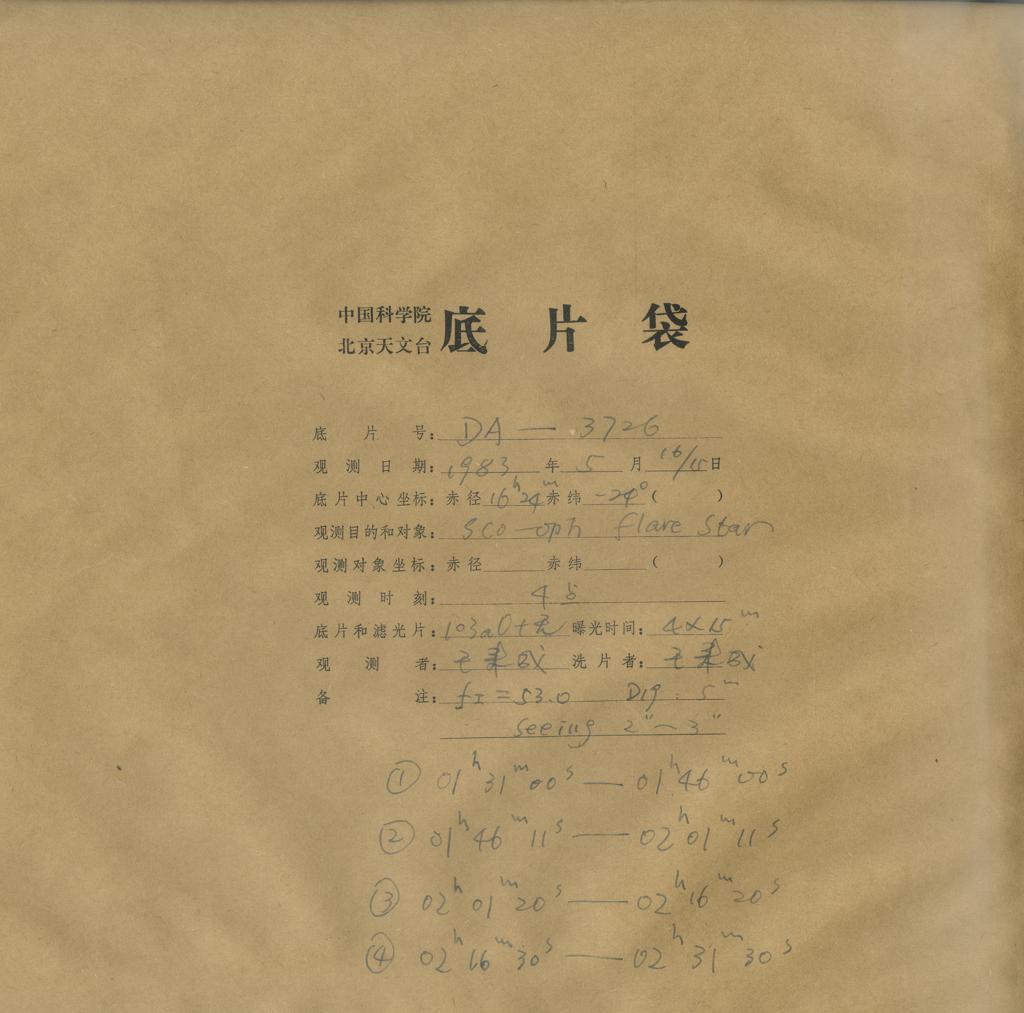 中国科学院
北京天文台
底片袋
底片号: DA — 3726
观测日期: 1983 年 5 月 16/15 日
底片中心坐标: 赤径 16h 24m 赤纬 -24° ( )
观测目的和对象: Sco-oph flare star
观测对象坐标: 赤径 赤纬 ( )
观测时刻: 4点
底片和滤光片: 103aO+无 曝光时间: 4×15m
观测者: 洗片者:
备注: fI = 53.0 D19: 5m
seeing 2"~3"
① 01h 31m 00s — 01h 46m 00s
② 01h 46m 11s — 02h 01m 11s
③ 02h 01m 20s — 02h 16m 20s
④ 02h 16m 30s — 02h 31m 30s